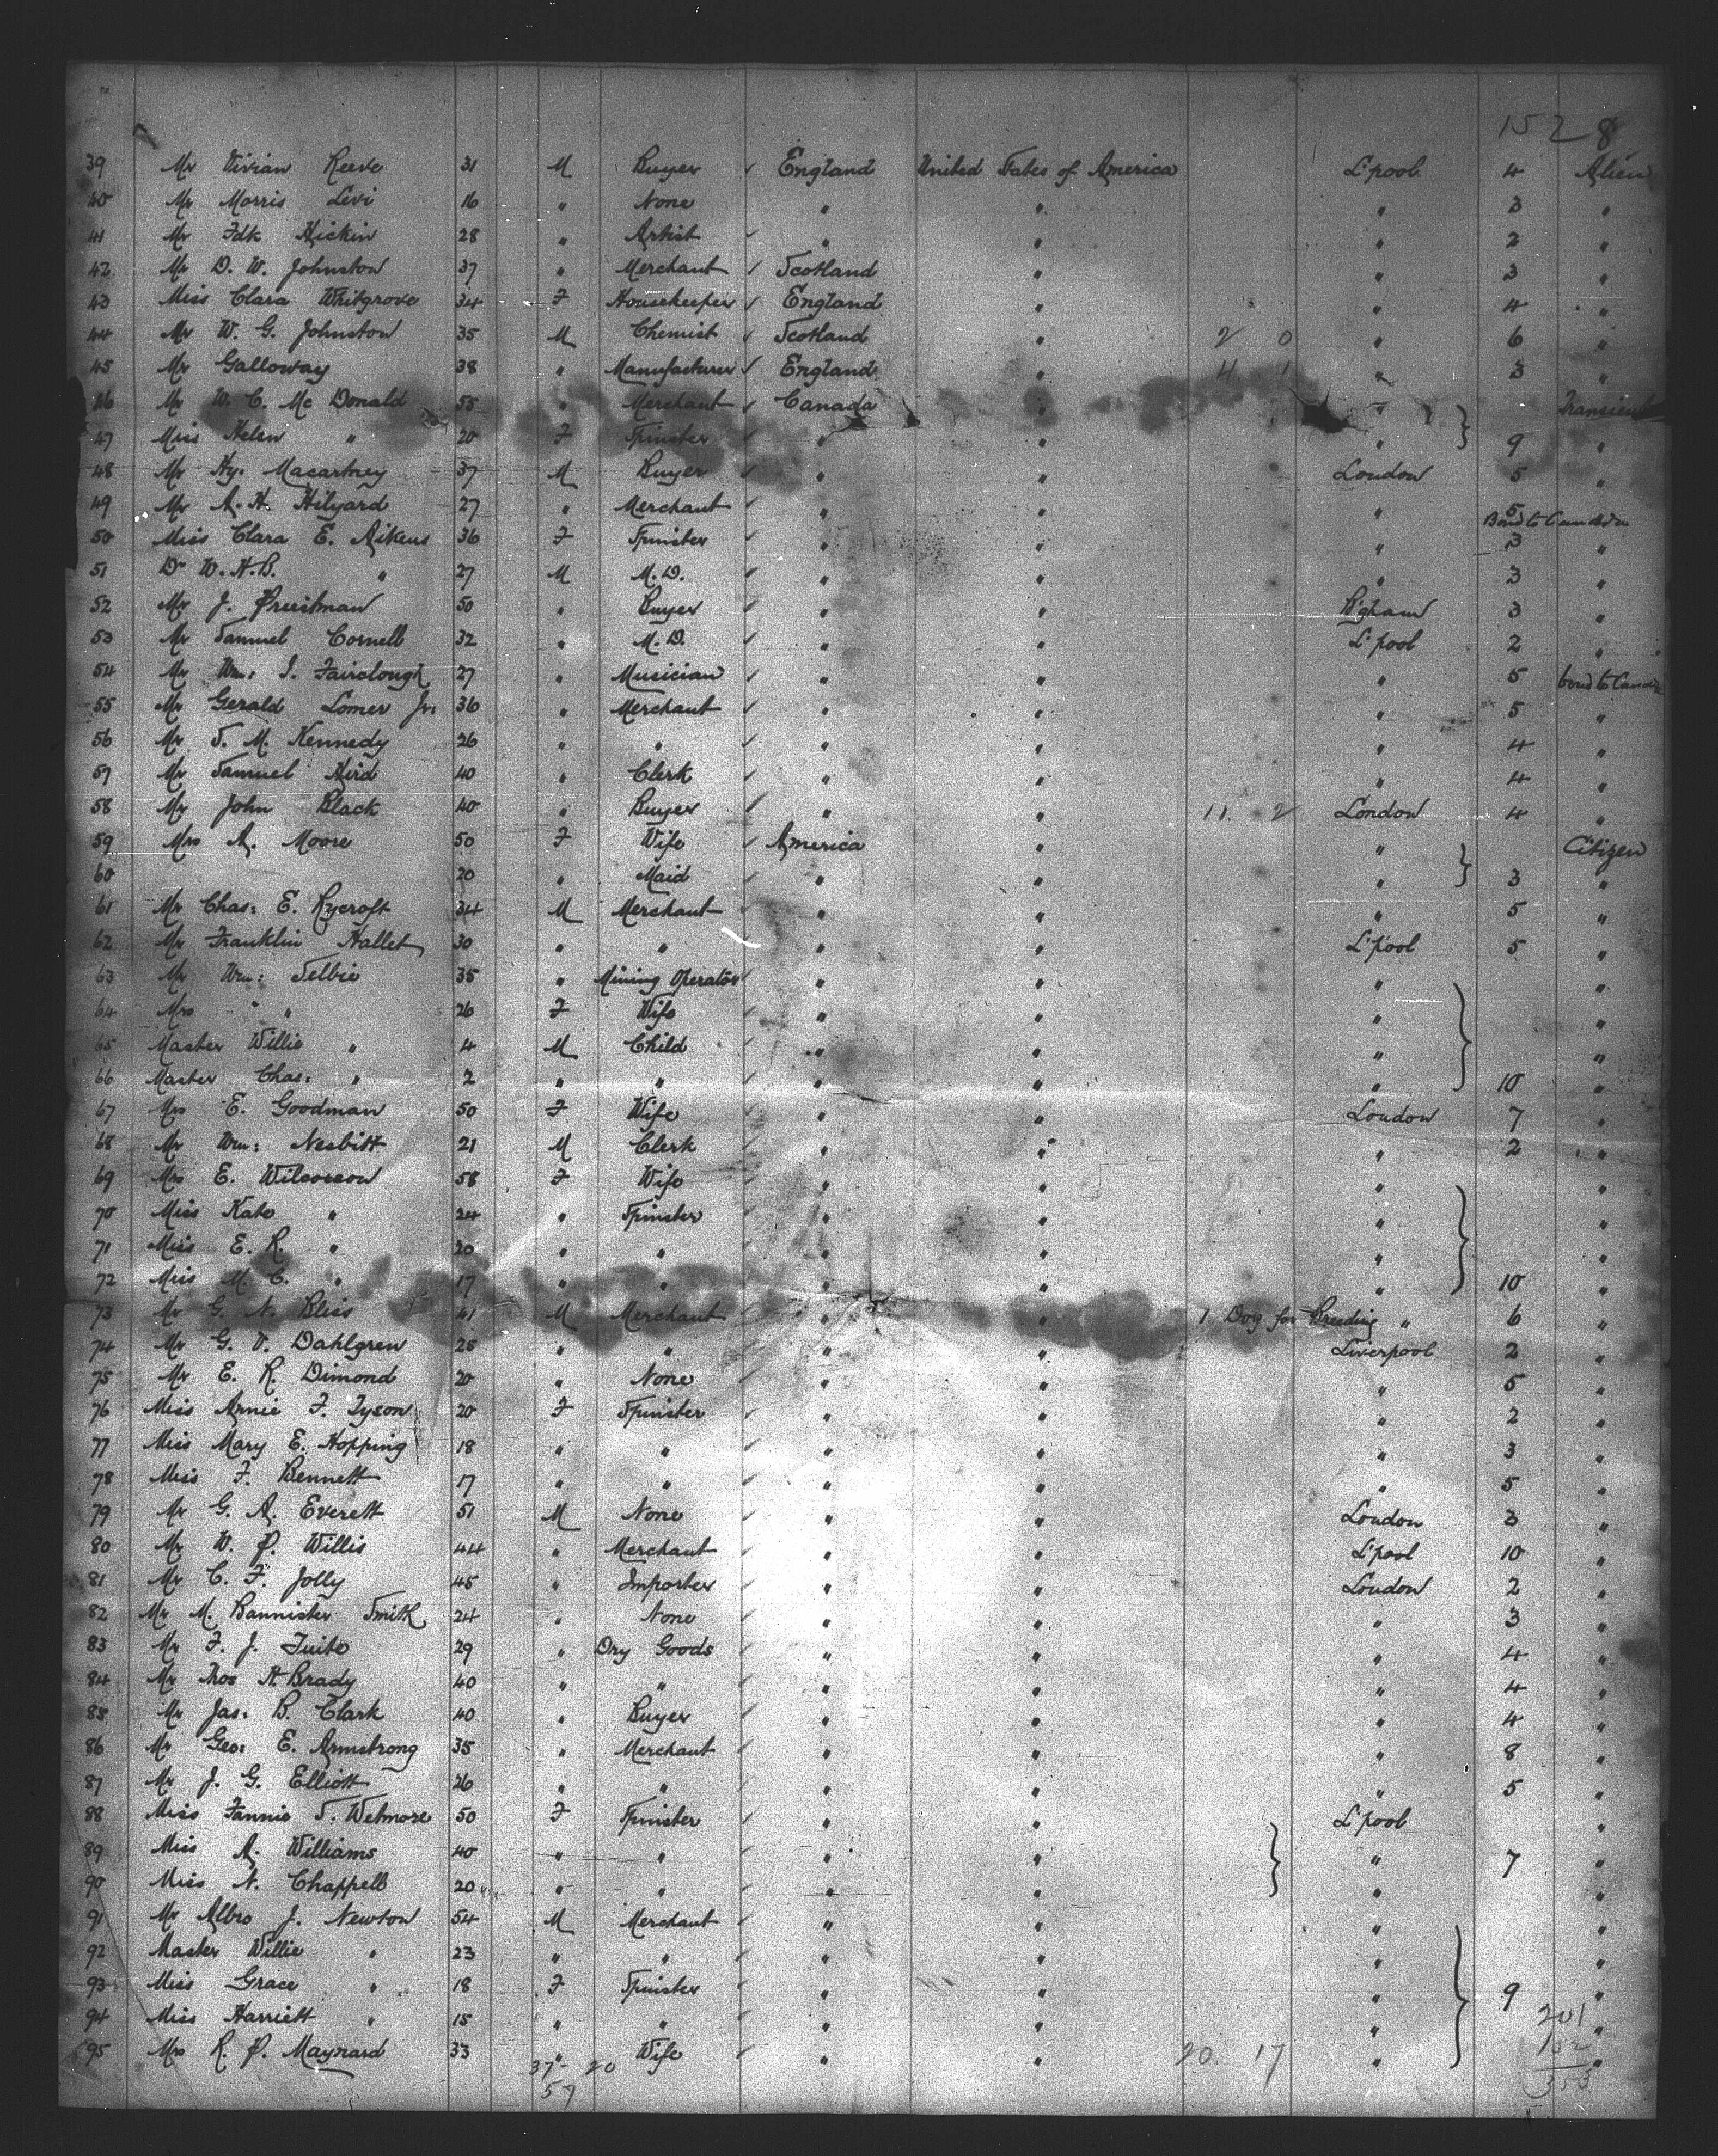 152 8
39 Mr Vivian Reeve 31 M Buyer England United States of America L'pool 4 Alien
40 Mr Morris Levi 16 " None " " " 3 "
41 Mr Fdk Hickin 28 " Artist " " " 2 "
42 Mr D. W. Johnston 37 " Merchant Scotland " " 3 "
43 Miss Clara Whitgrove 34 F Housekeeper England " " 4 "
44 Mr W. G. Johnston 35 M Chemist Scotland " 2 0 " 6 "
45 Mr Galloway 38 " Manufacturer England " 4 1 " 3 "
46 Mr W. C. Mc Donald 55 " Merchant Canada " " Transient
47 Miss Helen " 20 F Spinster " " " 9 "
48 Mr Hy. Macartney 37 M Buyer " " London 5 "
49 Mr A. H. Hilyard 27 " Merchant " " " 5 Bond to Canada
50 Miss Clara E. Aikens 36 F Spinster " " " 3 "
51 Dr W. H. B. " 27 M M. D. " " " 3 "
52 Mr J. Priestman 50 " Buyer " " B'gham 3 "
53 Mr Samuel Cornell 32 " M. D. " " L'pool 2 "
54 Mr Wm: I. Fairclough 27 " Musician " " " 5 bond to Canada
55 Mr Gerald Lomer Jr: 36 " Merchant " " " 5 "
56 Mr S. M. Kennedy 26 " " " " " 4 "
57 Mr Samuel Hird 40 " Clerk " " " 4 "
58 Mr John Black 40 " Buyer " " 11. 2 London 4 "
59 Mrs A. Moore 50 F Wife America " " Citizen
60 20 " Maid " " " 3 "
61 Mr Chas: E. Rycroft 34 M Merchant " " " 5 "
62 Mr Franklin Hallet 30 " " " " L'pool 5 "
63 Mr Wm: Selbie 35 " Mining Operator " " " "
64 Mrs " " 26 F Wife " " " "
65 Master Willie " 4 M Child " " " "
66 Master Chas: " 2 " " " " " 10 "
67 Mrs E. Goodman 50 F Wife " " London 7 "
68 Mr Wm: Nesbitt 21 M Clerk " " " 2 "
69 Mrs E. Wilcoxson 58 F Wife " " " "
70 Miss Kate " 24 " Spinster " " " "
71 Miss E. R. " 20 " " " " " "
72 Miss M. C. " 17 " " " " " 10 "
73 Mr G. N. Bliss 41 M Merchant " " 1 Dog for Breeding " 6 "
74 Mr G. V. Dahlgren 25 " " " " Liverpool 2 "
75 Mr E. R. Dimond 20 " None " " " 5 "
76 Miss Annie F. Tyson 20 F Spinster " " " 2 "
77 Miss Mary E. Hopping 18 " " " " " 3 "
78 Miss F. Bennett 17 " " " " " 5 "
79 Mr G. A. Everett 51 M None " " London 3 "
80 Mr W. P. Willis 44 " Merchant " " L'pool 10 "
81 Mr C. F. Jolly 45 " Importer " " London 2 "
82 Mr M. Bannister Smith 24 " None " " " 3 "
83 Mr F. J. Tuite 29 " Dry Goods " " " 4 "
84 Mr Thos H Brady 40 " " " " " 4 "
85 Mr Jas: B. Clark 40 " Buyer " " " 4 "
86 Mr Geo: E. Armstrong 35 " Merchant " " " 8 "
87 Mr J. G. Elliott 26 " " " " " 5 "
88 Miss Fannie S. Wetmore 50 F Spinster " " L'pool "
89 Miss A. Williams 40 " " " " " 7 "
90 Miss N. Chappell 20 " " " " " "
91 Mr Albro J. Newton 54 M Merchant " " " "
92 Master Willie " 23 " " " " " "
93 Miss Grace " 18 F Spinster " " " 9 "
94 Miss Harriett " 15 " " " " " "
95 Mrs R. P. Maynard 33 " Wife " " 20. 17 " "
37 - 20
57
201
152
353